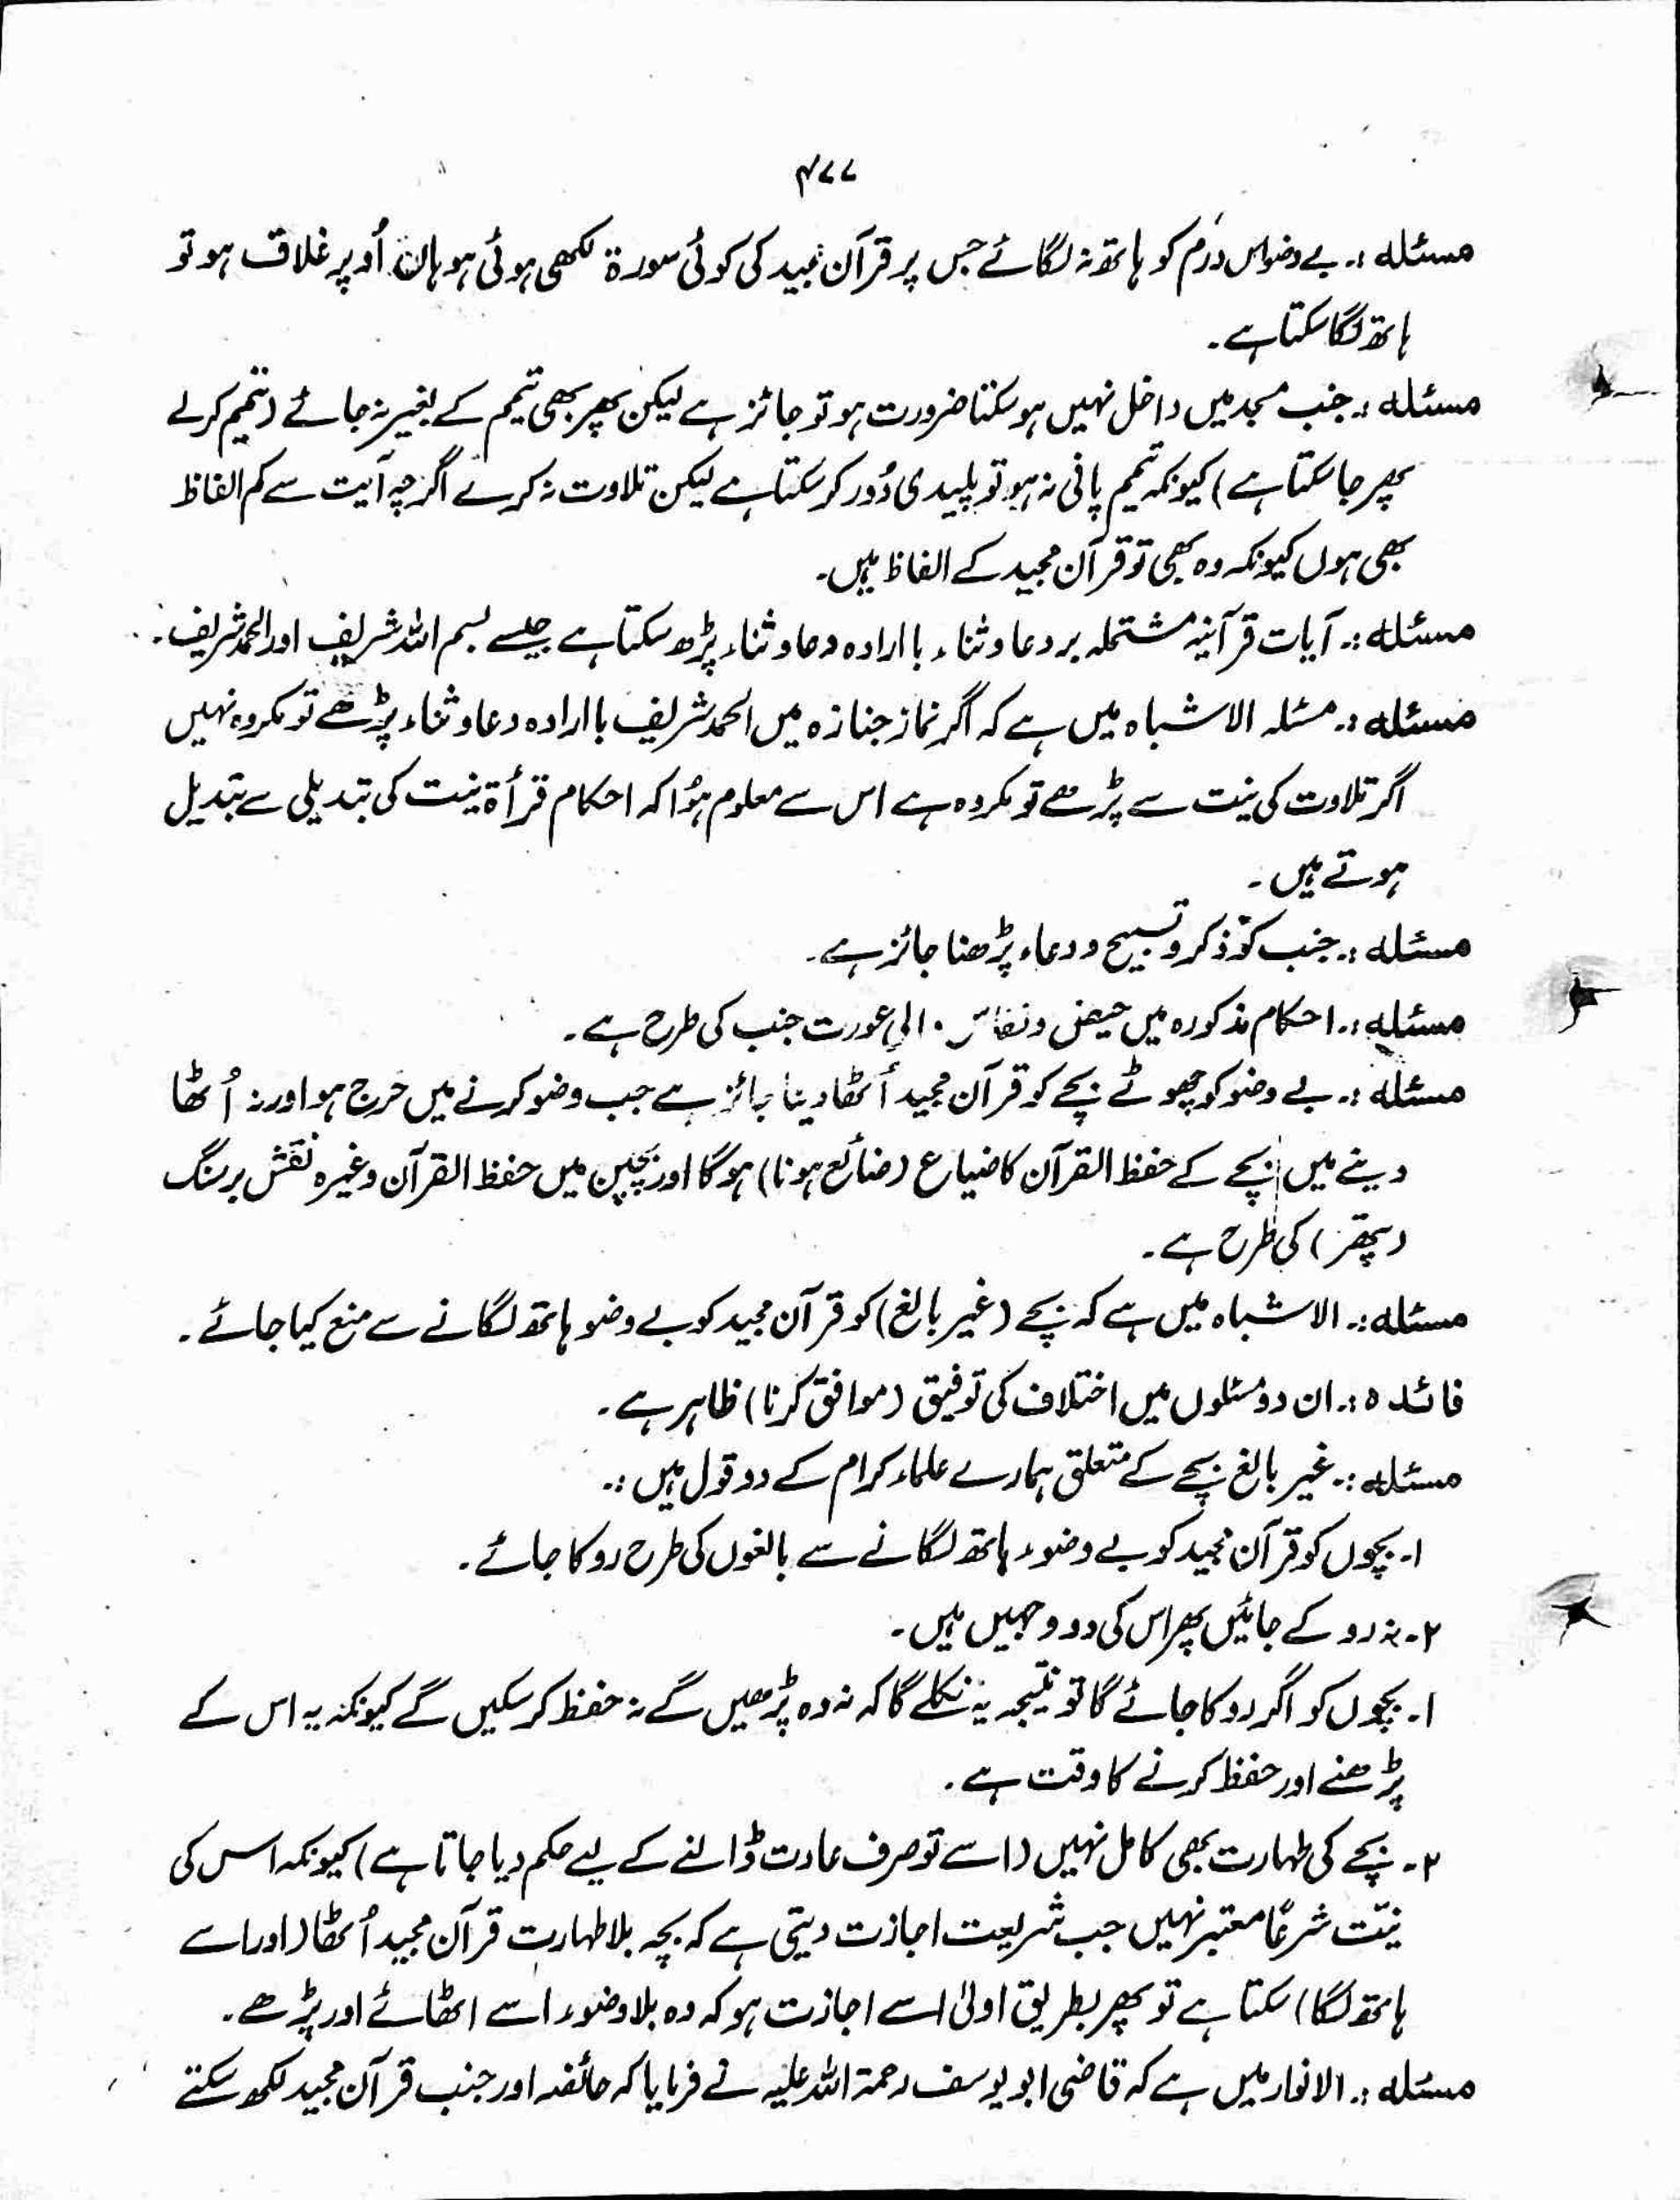 ۴۷۷
مسئلہ :۔ بے وضو اس درم کو ہاتھ نہ لگائے جس پر قرآن مجید کی کوئی سورۃ لکھی ہوئی ہو ہاں اُوپر غلاف ہو تو
ہاتھ لگا سکتا ہے ۔
مسئلہ :۔ جنب مسجد میں داخل نہیں ہو سکتا ضرورت ہو تو جائز ہے لیکن پھر بھی تیمم کے بغیر نہ جائے (تیمم کرلے
پھر جا سکتا ہے) کیونکہ تیمم پانی نہ ہو تو پلیدی دُور کر سکتا ہے لیکن تلاوت نہ کرے اگرچہ آیت سے کم الفاظ
بھی ہوں کیونکہ وہ بھی تو قرآن مجید کے الفاظ ہیں۔
مسئلہ :۔ آیات قرآنیہ مشتملہ بر دعا و ثناء باارادہ دعا و ثناء پڑھ سکتا ہے جیسے بسم اللہ شریف اور الحمد شریف ۔
مسئلہ :۔ مسئلہ الاشباہ میں ہے کہ اگر نماز جنازہ میں الحمد شریف باارادہ دعا و ثناء پڑھے تو مکروہ نہیں
اگر تلاوت کی نیت سے پڑھے تو مکروہ ہے اس سے معلوم ہُوا کہ احکام قرأۃ نیت کی تبدیلی سے تبدیل
ہوتے ہیں ۔
مسئلہ :۔ جنب کو ذکر و تسبیح و دعاء پڑھنا جائز ہے ۔
مسئلہ :۔ احکام مذکورہ میں حیض و نفاس والی عورت جنب کی طرح ہے ۔
مسئلہ :۔ بے وضو کو چھوٹے بچے کو قرآن مجید اُٹھا دینا جائز ہے جب وضو کرنے میں حرج ہو اور نہ اُٹھا
دینے میں بچے کے حفظ القرآن کا ضیاع (ضائع ہونا) ہوگا اور بچپن میں حفظ القرآن وغیرہ نقش بر سنگ
(پتھر) کی طرح ہے ۔
مسئلہ :۔ الاشباہ میں ہے کہ بچے (غیر بالغ) کو قرآن مجید کو بے وضو ہاتھ لگانے سے منع کیا جائے ۔
فائدہ :۔ ان دو مسئلوں میں اختلاف کی توفیق (موافق کرنا) ظاہر ہے ۔
مسئلہ :۔ غیر بالغ بچے کے متعلق ہمارے علماء کرام کے دو قول ہیں :۔
۱۔ بچوں کو قرآن مجید کو بے وضوء ہاتھ لگانے سے بالغوں کی طرح روکا جائے ۔
۲۔ نہ روکے جائیں پھر اس کی دو وجہیں ہیں ۔
۱۔ بچوں کو اگر روکا جائے گا تو نتیجہ یہ نکلے گا کہ نہ وہ پڑھیں گے نہ حفظ کر سکیں گے کیونکہ یہ اس کے
پڑھنے اور حفظ کرنے کا وقت ہے ۔
۲۔ بچے کی طہارت بھی کامل نہیں (اسے تو صرف عادت ڈالنے کے لیے حکم دیا جاتا ہے) کیونکہ اس کی
نیّت شرعًا معتبر نہیں جب شریعت اجازت دیتی ہے کہ بچہ بلا طہارت قرآن مجید اُٹھا (اور اسے
ہاتھ لگا) سکتا ہے تو پھر بطریق اولیٰ اسے اجازت ہو کہ وہ بلا وضوء اسے اٹھائے اور پڑھے ۔
مسئلہ :۔ الانوار میں ہے کہ قاضی ابو یوسف رحمۃ اللہ علیہ نے فرمایا کہ حائضہ اور جنب قرآن مجید لکھ سکتے